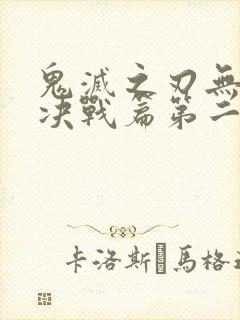 鬼滅之刃無
決戰篇第二
卡洛斯 馬格